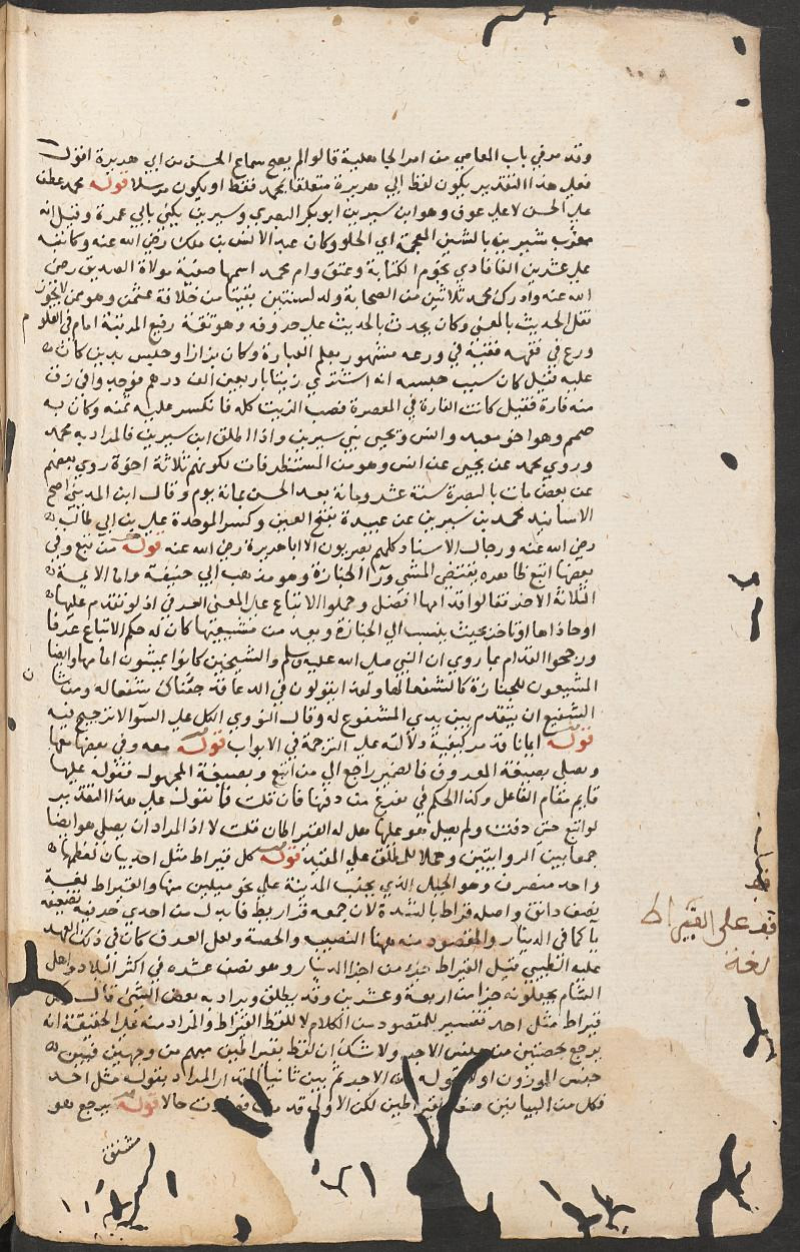 وقد مر في باب المعاصي من امر الجاهلية قالوا لم يصح سماع الحسن من ابي هريرة اقول
فعلي هذا التقدير يكون لفظ ابي هريرة متعلقا بمحمد فقط او يكون مرسلا قوله محمد عطف
علي الحسن لا علي عوف وهو ابن سيرين ابو بكر البصري وسيرين يكنى بابي عمرة وقيل انه
معرب شيرين بالشين المعجمة اي الحلو وكان عبدا لانس بن مالك رضي الله عنه وكاتبه
علي عشرين الفا فادي نجوم الكتابة وعتق وام محمد اسمها صفية مولاة الصديق رضي
الله عنه وادرك محمد ثلاثين من الصحابة ولد لسنتين بقيتا من خلافة عثمن وهو ممن لا يجوز
نقل الحديث بالمعنى وكان يحدث بالحديث علي حروفه وهو ثقة رفيع المرتبة امام في العلوم
ورع في فقهه فقيه في ورعه مشهور بعلم العبارة وكان بزازا وحبس بدين كان
عليه قيل كان سبب حبسه انه اشترى زيتا باربعين الف درهم فوجد وافي زق
منه فارة فقيل كانت الفارة في المعصرة فصب الزيت كله فانكسر عليه ثمنه وكان به
صمم وهو اخو معبد وانس ويحيى بني سيرين واذا اطلق ابن سيرين فالمراد به محمد
وروي محمد عن يحيى عن انس وهو من المستظرفات لكونهم ثلاثة اخوة روي بعضهم
عن بعض مات بالبصرة سنة عشر ومائة بعد الحسن بمائة يوم وقال ابن المديني اصح
الاسانيد محمد بن سيرين عن عبيدة بفتح العين وكسر الموحدة علي بن ابي طالب
رضي الله عنه ورجال الاسناد كلهم بصريون الا ابا هريرة رضي الله عنه قوله من تبع وفي
بعضها اتبع ظاهره يقتضي المشي ورا الجنازة وهو مذهب ابي حنيفة واما الايمة
الثلاثة الاخر فقالوا قدامها افضل وحملوا الاتباع علي المعنى العرفي اذ لو تقدم عليها
او حاذاها او تاخر بحيث ينسب الي الجنازة ويعد من مشيعيها كان له حكم الاتباع عرفا
ورجحوا القدام بما روي ان النبي صلى الله عليه وسلم والشيخين كانوا يمشون امامها وايضا
المشيعون للجنازة كالشفعا لها ولهذا يقولون في الدعا قد جئناك شفعا له ومن شان
الشفيع ان يتقدم بين يدي المشفوع له وقال النووي الكل علي السوا لا ترجيح فيه
قوله ايمانا قد مر كيفية دلالته علي الترجمة في الابواب قوله معه وفي بعضها معها
ويصلى بصيغة المعروف فالضمير راجع الي من اتبع وبصيغة المجهول فقوله عليها
قايم مقام الفاعل وكذا الحكم في يفرغ من دفنها فان قلت فما تقول علي هذا التقدير
لو اتبع حتى دفنت ولم يصل هو عليها هل له القيراطان قلت لا اذ المراد ان يصلي هو ايضا
جمعا بين الروايتين وحملا للمطلق علي المقيد قوله كل قيراط مثل احد بيان لعظمها
واحد منصرف وهو الجبل الذي بجنب المدينة علي نحو ميلين منها والقيراط لغة
نصف دانق واصله قراط بالشدة لان جمعه قراريط فابدل من احدي حرفي تضعيفه
يا كما في الدينار والمقصود منه ههنا النصيب والحصة ولعل العرف كان في ذلك العهد
عليه الطيبي قيل القيراط جزء من اجزا الدينار وهو نصف عشره في اكثر البلاد واهل
الشام يجعلونه جزا من اربعة وعشرين وقد يطلق ويراد به بعض الشي قال كل
قيراط مثل احد تفسير للمقصود من الكلام لا للفظ القيراط والمراد منه علي الحقيقة انه
يرجع بحصتين من جنس الاجر ولا شك ان لفظ بقيراطين مبهم من وجهين فبين
جنس الموزون اولا بقوله من الاجر ثم بين ثانيا المقدار المراد بقوله مثل احد
فكل من البيانين صفة لقيراطين لكن الاولى قد حالا قوله يرجع هو
قف على القيراط
لغة
مشتق